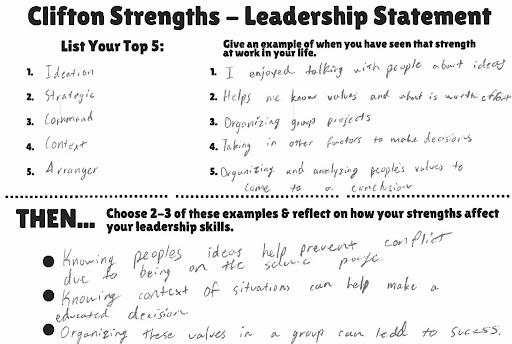 Clifton Strengths – Leadership Statement
List Your Top 5:
1. Ideation
2. Strategic
3. Command
4. Context
5. Arranger
Give an example of when you have seen that strength
at work in your life.
1. I enjoyed talking with people about ideas
2. Helps me know values and what is worth effort
3. Organizing group projects
4. Taking in other factors to make decisions
5. Organizing and analyzing people's values to
come to a conclusion
THEN... Choose 2–3 of these examples & reflect on how your strengths affect
your leadership skills.
● Knowing peoples ideas help prevent conflict
due to being on the same page.
● Knowing context of situations can help make a
educated decision
● Organizing these values in a group can lead to sucess.